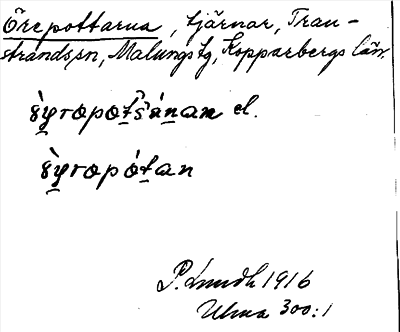 Örepottarna, tjärnar, Tran-
strands sn, Malungs tg, Kopparbergs län.
el.
P. Lundh 1916
Ulma 300:1